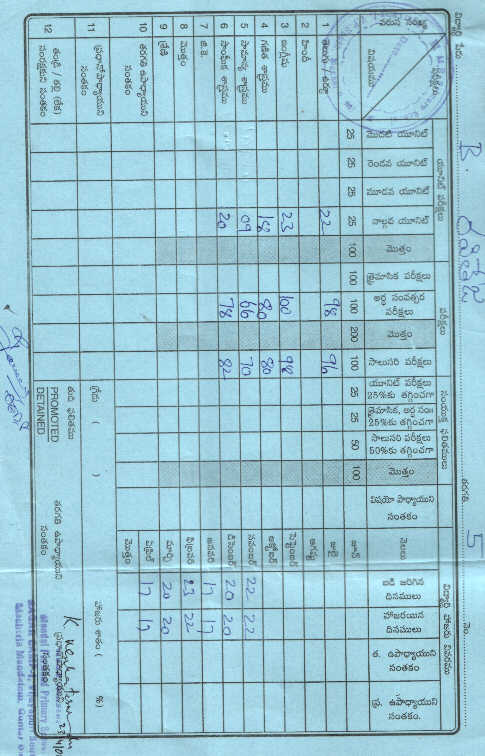 విద్యార్థి పేరు B. తరగతి 5 నెం.
వరుస సంఖ్య
విషయము
పరీక్షలు
యూనిట్ పరీక్షలు
మొదటి యూనిట్ 25
రెండవ యూనిట్ 25
మూడవ యూనిట్ 25
నాల్గవ యూనిట్ 25
మొత్తం 100
పరీక్షలు
త్రైమాసిక పరీక్షలు 100
అర్ధ సంవత్సర పరీక్షలు 100
మొత్తం 200
సాలుసరి పరీక్షలు 100
సంయుక్త ఫలితములు
యూనిట్ పరీక్షలు 25%కు తగ్గించగా 25
త్రైమాసిక, అర్ధ సం॥ 25%కు తగ్గించగా 25
సాలుసరి పరీక్షలు 50%కు తగ్గించగా 50
మొత్తం 100
విషయో పాధ్యాయుని సంతకం
1 తెలుగు / ఉర్దూ 22 98 96
2 హింది
3 ఇంగ్లీషు 23 100 98
4 గణిత శాస్త్రము 18 80 80
5 సామాన్య శాస్త్రము 09 66 70
6 సాంఘీక శాస్త్రము 20 78 82
7 జి.కె.
8 మొత్తం
9 గ్రేడి
10 తరగతి ఉపాధ్యాయుని సంతకం
11 ప్రధానోపాధ్యాయుని సంతకం
12 తండ్రి / తల్లి (లేక) సంరక్షకుని సంతకం
విద్యార్థి హాజరు వివరము
నెలలు
బడి జరిగిన దినములు
హాజరయిన దినములు
త. ఉపాధ్యాయుని సంతకం
ప్ర. ఉపాధ్యాయుని సంతకం.
జూన్
జూలై
ఆగష్టు
సెప్టెంబర్
అక్టోబర్
నవంబర్ 22 22
డిసెంబర్ 20 20
జనవరి 17 17
ఫిబ్రవరి 23 22
మార్చి 20 20
ఏప్రిల్ 17 17
మొత్తం
గ్రేడు ( )
హాజరు శాతం ( %)
తుది ఫలితము
PROMOTED
DETAINED
తరగతి ఉపాధ్యాయుని సంతకం
ప్రధానోపాధ్యాయుని సంతకం